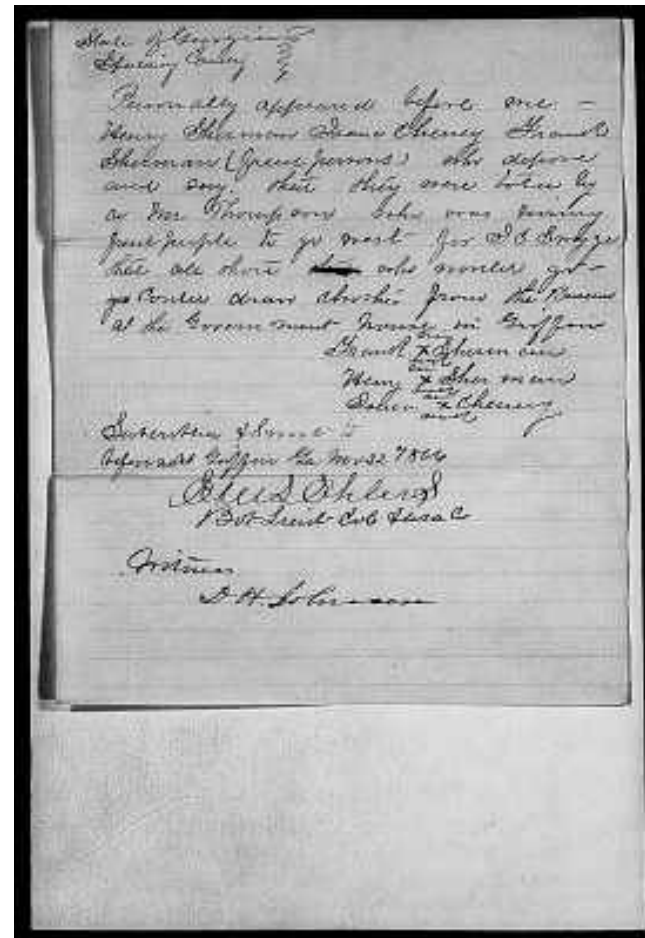 State of Georgia
Spalding County
Personally appeared before me -
Henry Sherman Isaac Cheney Frank
Sherman (freed persons) who depose
and say. that they were told by
a Mr. Thompson who was hiring
free people to go west for
that all those who would
go could draw from the Bureau
at the Government House in Griffin
Frank X Sherman
Henry X Sherman
X Cheney
Subscribed & Sworn to
before me at Griffin Ga
Bvt Lieut Col
Witness
D. H. Johnson